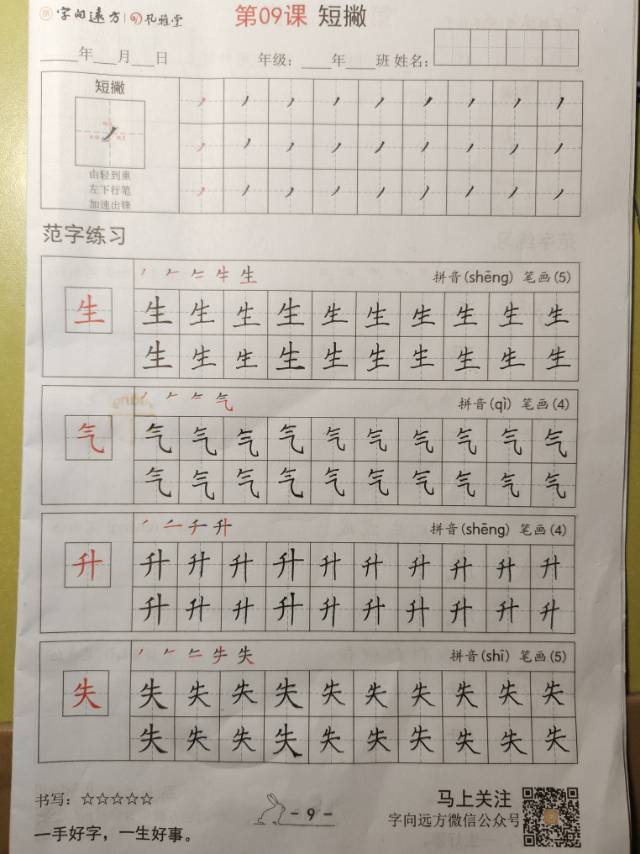 字向远方 孔雅堂 第09课 短撇
年 月 日 年级: 年 班 姓名:
短撇
由轻到重
左下行笔
加速出锋
范字练习
拼音(shēng) 笔画(5)
生 生 生 生 生 生 生 生 生 生 生
生 生 生 生 生 生 生 生 生 生
气 拼音(qì) 笔画(4)
气 气 气 气 气 气 气 气 气 气 气
气 气 气 气 气 气 气 气 气 气
升 拼音(shēng) 笔画(4)
升 升 升 升 升 升 升 升 升 升 升
升 升 升 升 升 升 升 升 升 升
失 拼音(shī) 笔画(5)
失 失 失 失 失 失 失 失 失 失 失
失 失 失 失 失 失 失 失 失 失
书写: ☆☆☆☆☆
一手好字，一生好事。
- 9 -
马上关注
字向远方微信公众号